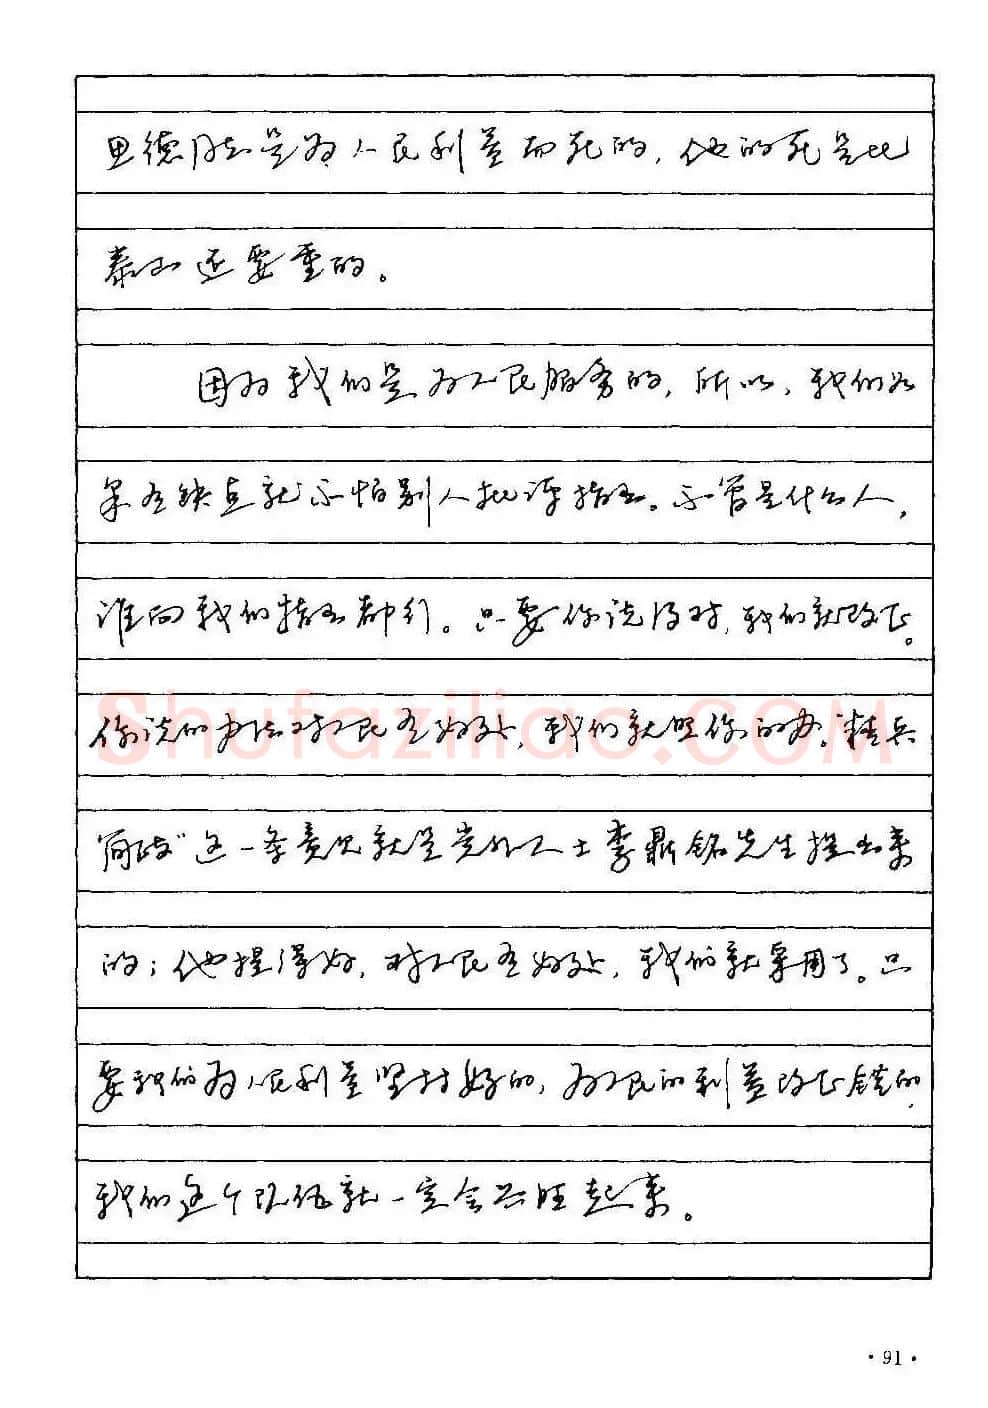 思德同志是为人民利益而死的，他的死是比
泰山还要重的。
因为我们是为人民服务的，所以，我们如
果有缺点就不怕别人批评指出。不管是什么人，
谁向我们指出都行。只要你说得对，我们就改正。
你说的办法对人民有好处，我们就照你的办。“精兵
简政”这一条意见就是党外人士李鼎铭先生提出来
的；他提得好，对人民有好处，我们就采用了。只
要我们为人民利益坚持好的，为人民的利益改正错的，
我们这个队伍就一定会兴旺起来。
Shufaziliao.COM
·91·